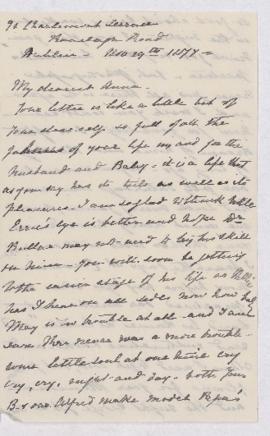 Charlemont Terrace
Road
Dublin - Nov 29th 1877 -
My dearest Anna -
Your letter is like a little bit of
Your dear self - so full of all the
of your life in and for the
Husband and Baby - it is a life that
as you say has its toils as well as its
pleasures. I am so glad to think little
Ernie's Eye is better and hope Dr
may not need to try his skill
on him - You will soon be getting
to the easier stage of his life as Nellie
has I hear on all sides now how
May is no trouble at all - and I am
sure there never was a more trouble-
some little soul at one time cry
cry, cry, night and day - both Your
B. & our Alfred make model Papa's